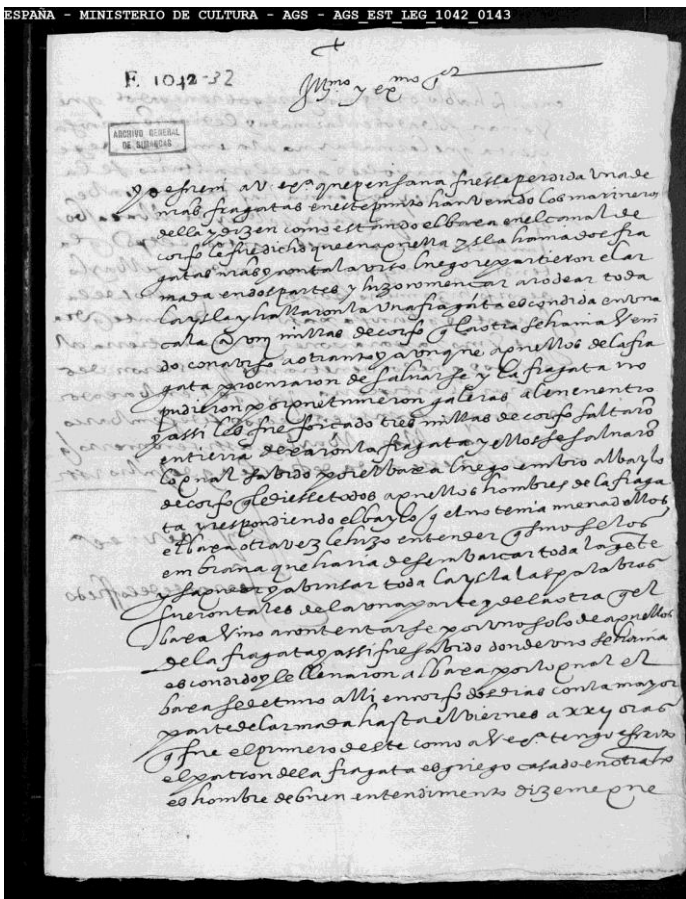 ESPAÑA - MINISTERIO DE CULTURA - AGS - AGS_EST_LEG_1042_0143
E 1042-32
Ill.mo y ex.mo s.or
ARCHIVO GENERAL
DE SIMANCAS
yo escreui a V ex.a que pensaua fuesse perdida una de
mis fragatas en este punto han venido los marineros
della y dizen como estando el baxa en el canal de
corfo le fue dicho que en aquella ysla hauia dos fra
gatas luego repartieron el ar
mada en dos partes y hizo a rodear toda
la ysla y hallaron la una fragata escondida en una
cala a viij millas de corfo q la otra se hauia veni
do con auiso a otranto y aunque aquellos de la fra
gata procuraron de saluarse y la fragata no
pudieron porque tuuieron galeras al encuentro
y assi les fue forçado tres millas de corfo saltarõ
en tierra dexaron la fragata y ellos se saluarõ
lo qual sabido por el baxa luego embio al baylo
de corfo q le diesse todos aquellos hombres de la fraga
ta y respondiendo el baylo q el no tenia
el baxa otra vez le hizo entender q si no se los
embiaua que haria desembarcar toda la gente
y saquear y abrusar toda la ysla las palabras
fueron tales de la una parte y de la otra q el
baxa vino a contentarse por uno solo de aquellos
de la fragata y assi fue sabido donde uno se hauia
escondido y le lleuaron al baxa por lo qual el
baxa se detuuo alli en corfo dos dias con la mayor
parte del armada hasta el viernes a xxij oras
q fue el primero deste como a V ex.a tengo escrito
el patron della fragata es griego casado en otrãto
es hombre de buen entendimento dizeme que